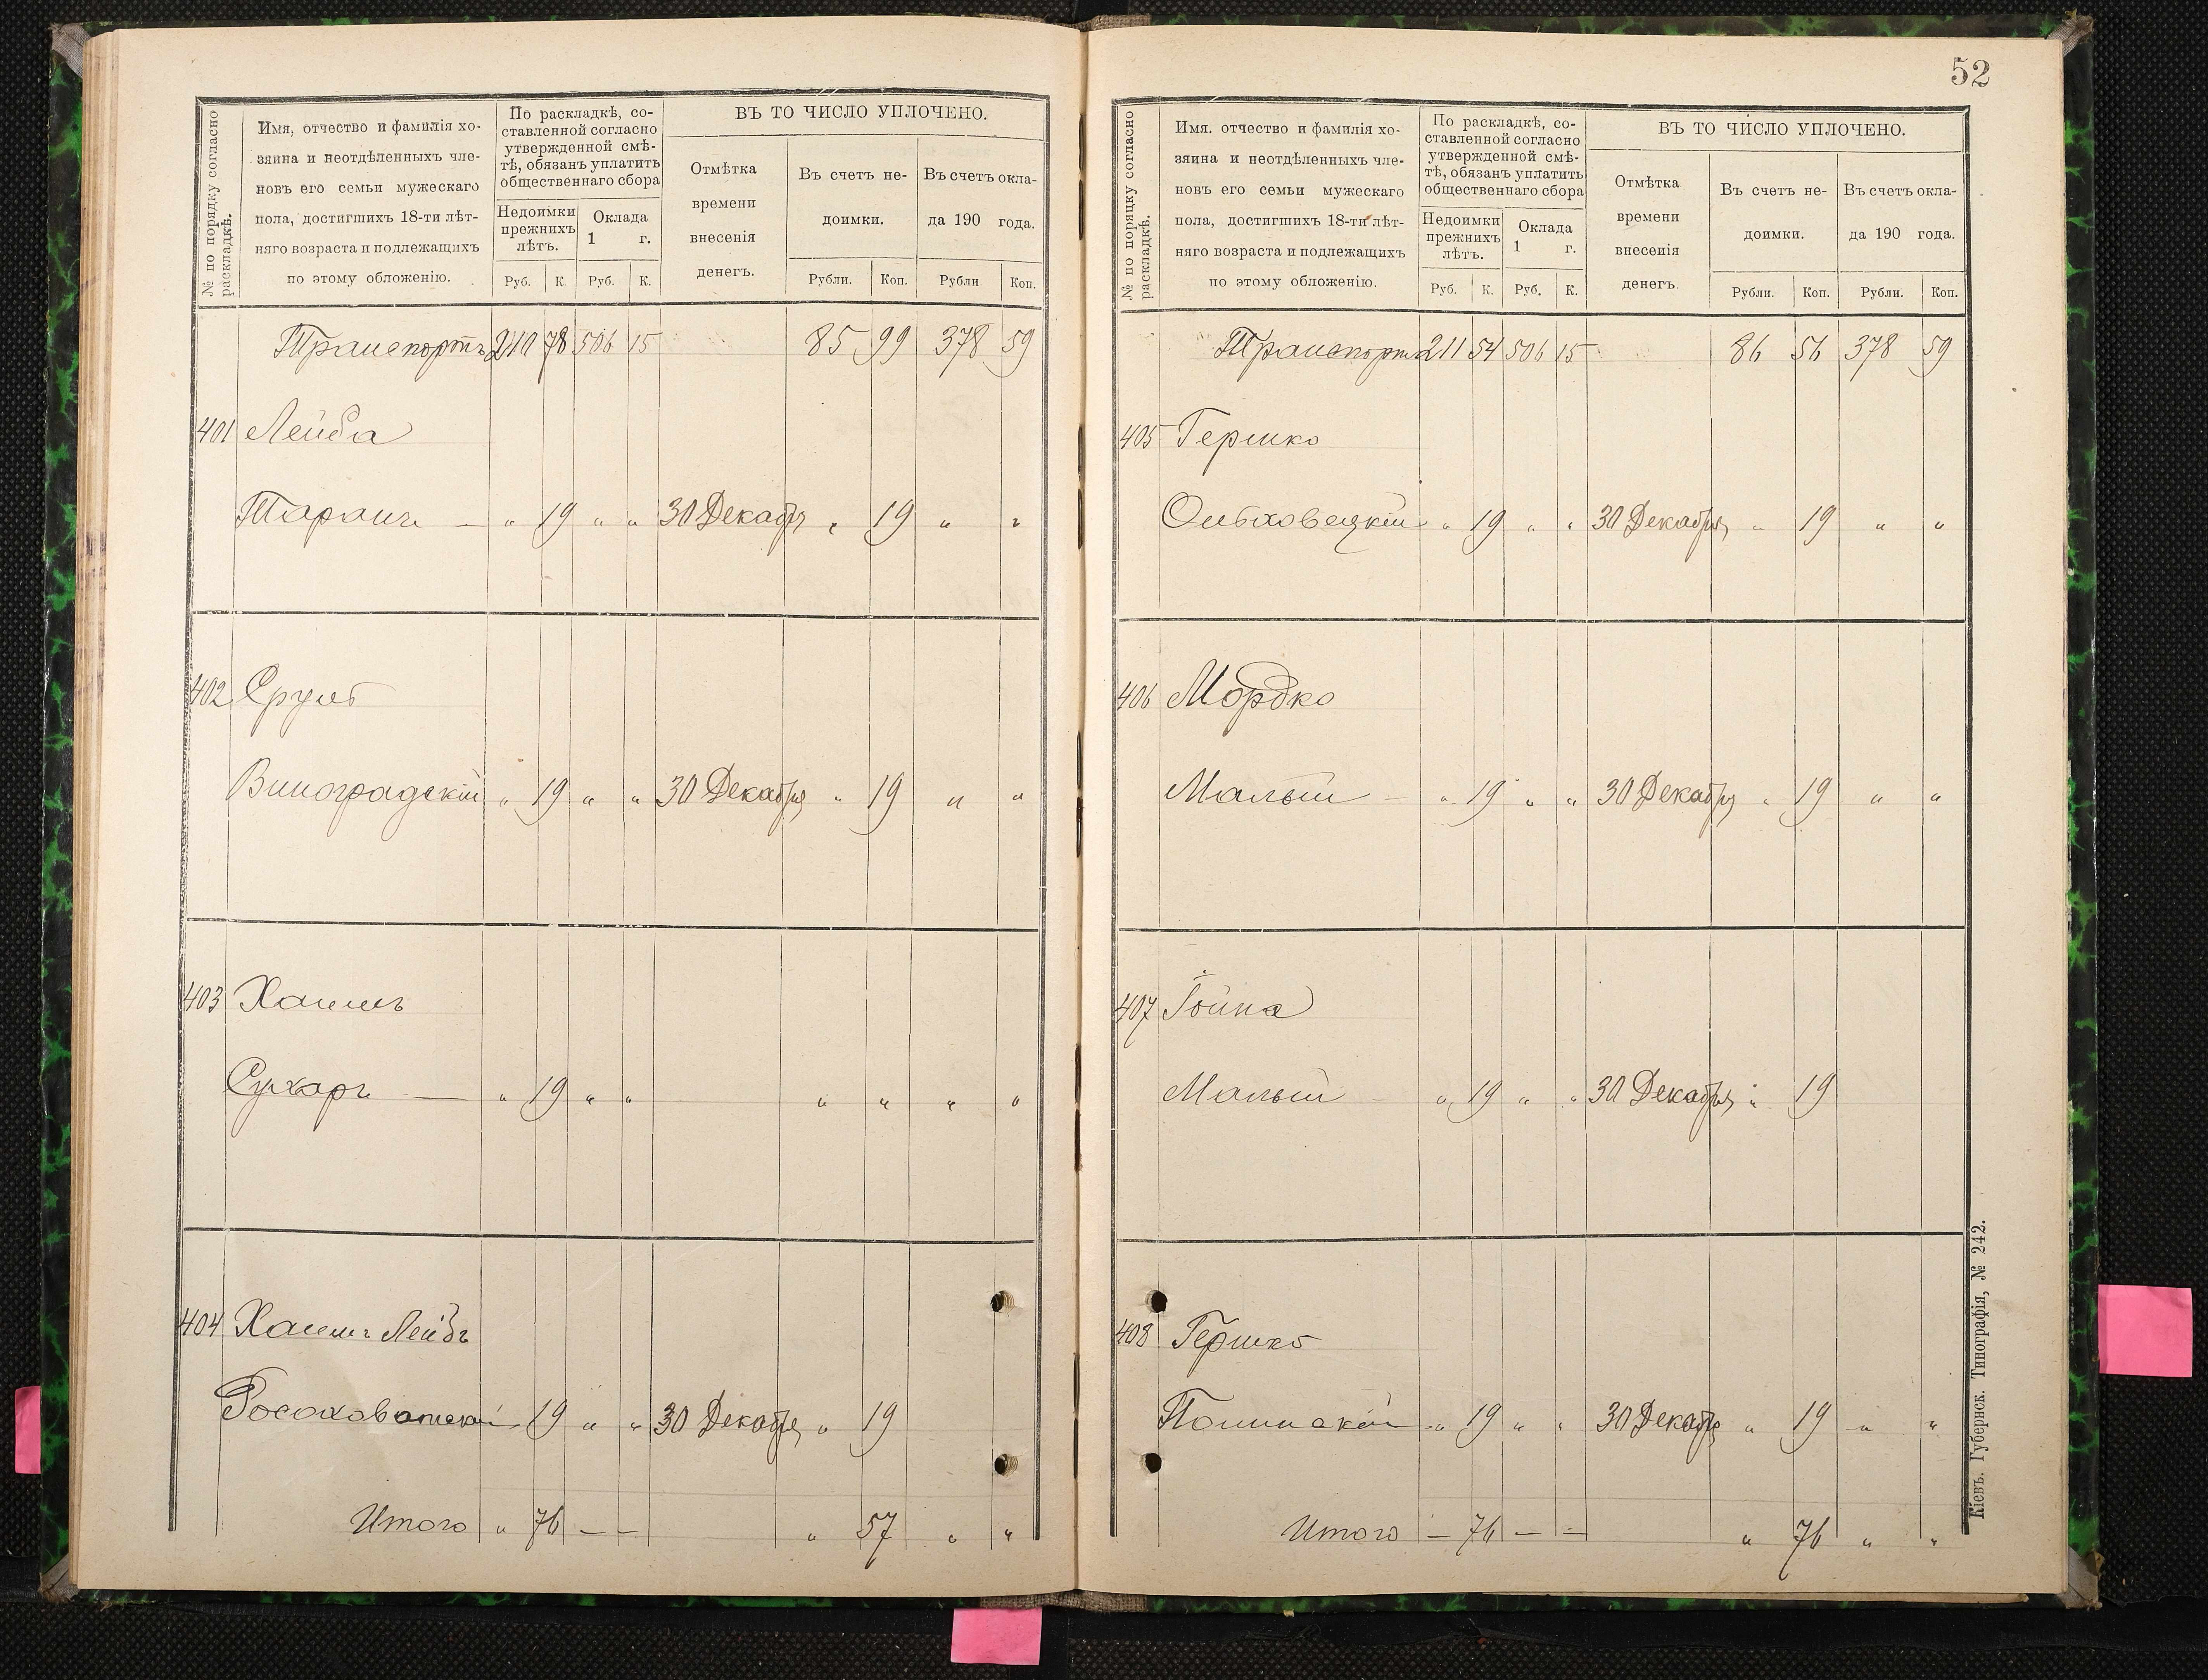 № по порядку согласно раскладкѣ.
Имя, отчество и фамилія хо-
зяина и неотдѣленныхъ чле-
новъ его семьи мужескаго
пола, достигшихъ 18-ти лѣт-
няго возраста и подлежащихъ
по этому обложенію.
По раскладкѣ, со-
ставленной согласно
утвержденной смѣ-
тѣ, обязанъ уплатить
общественнаго сбора
Недоимки
прежнихъ
лѣтъ.
Оклада
1 г.
Руб. К. Руб. К.
ВЪ ТО ЧИСЛО УПЛОЧЕНО.
Отмѣтка
времени
внесенія
денегъ.
Въ счетъ не-
доимки.
Въ счетъ окла-
да 190 года.
Рубли. Коп. Рубли Коп.
Транспортъ 210 78 506 15 85 99 378 59
401 Лейба
Таранъ — " 19 " " 30 Декабря " 19 " "
402 Сруль
Виноградскій " 19 " " 30 Декабря " 19 " "
403 Хаимъ
Сухаръ — " 19 " " " " " "
404 Хаимъ Лейбъ
Росоховатскій 19 " " 30 Декабря " 19
Итого " 76 — — " 57 " "
52
№ по порядку согласно раскладкѣ.
Имя. отчество и фамилія хо-
зяина и неотдѣленныхъ чле-
новъ его семьи мужескаго
пола, достигшихъ 18-ти лѣт-
няго возраста и подлежащихъ
по этому обложенію.
По раскладкѣ, со-
ставленной согласно
утвержденной смѣ-
тѣ, обязанъ уплатить
общественнаго сбора
Недоимки
прежнихъ
лѣтъ.
Оклада
1 г.
Руб. К. Руб. К.
ВЪ ТО ЧИСЛО УПЛОЧЕНО.
Отмѣтка
времени
внесенія
денегъ.
Въ счетъ не-
доимки.
Въ счетъ окла-
да 190 года.
Рубли. Коп. Рубли. Коп.
Транспортъ 211 54 506 15 86 56 378 59
405 Гершко
Ольховецкій " 19 " " 30 Декабря " 19 " "
406 Мордко
Малый — " 19 " " 30 Декабря " 19 " "
407 Іойна
Малый " 19 " " 30 Декабря " 19
408 Гершко
" 19 " " 30 Декабря " 19 " "
Итого — 76 — — " 76 " "
Кіевъ. Губернск. Типографія, № 242.